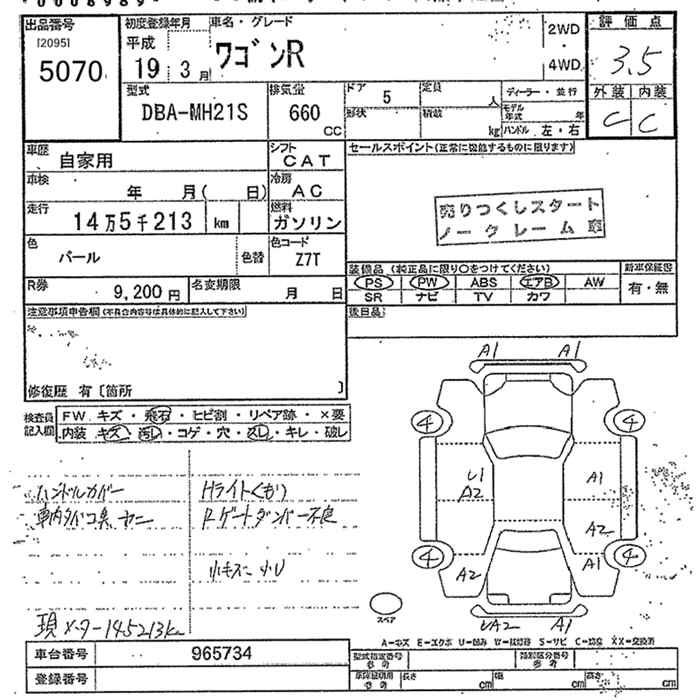 出品番号
[2095]
5070
初度登録年月
平成
19 3 月
車名・グレード
ワゴンR
2WD
・
4WD
評価点
3.5
外装 内装
C C
型式
DBA-MH21S
排気量
660
CC
ドア 5
形状
定員 人
積載 kg
ディーラー・並行
モデル年式 年
ハンドル 左・右
車歴
自家用
シフト
CAT
車検
年 月( 日)
冷房
AC
走行
14万5千213 km
燃料
ガソリン
色
パール
色替
色コード
Z7T
R券
9,200円
名変期限
月 日
セールスポイント(正常に機能するものに限ります)
売りつくしスタート
ノークレーム車
装備品(純正品に限り○をつけてください)
PS PW ABS エアB AW
SR ナビ TV カワ
新車保証書
有・無
後日品
注意事項申告欄(不具合内容等は具体的に記入して下さい)
修復歴 有〔箇所 〕
検査員
記入欄
FW キズ・飛石・ヒビ割・リペア跡・×要
内装 キズ・汚レ・コゲ・穴・スレ・キレ・破レ
ハンドルカバー
車内タバコ臭 ヤニ
Hライトくもり
Rゲートダンパー不良
小キズ 小U
現メーター145213km
A1 A1
4 4
U1
A2
A1
A2
4 4
A2
A1
UA2 A1
スペア
A=キズ E=エクボ U=凹み W=技修跡 S=サビ C=腐食 XX=交換済
車台番号
965734
登録番号
型式指定番号
参考
類別区分番号
参考
車庫証明用
参考
長さ cm
幅 cm
高さ cm